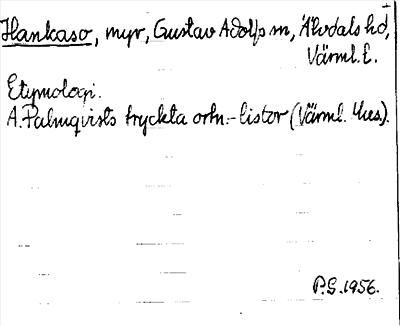 Hankaso, myr, Gustav Adolfs sn, Älvdals hd,
Värml. l.
Etymologi.
A. Palmqvists tryckta ortn.-listor (Värml. Mus).
P.G. 1956.